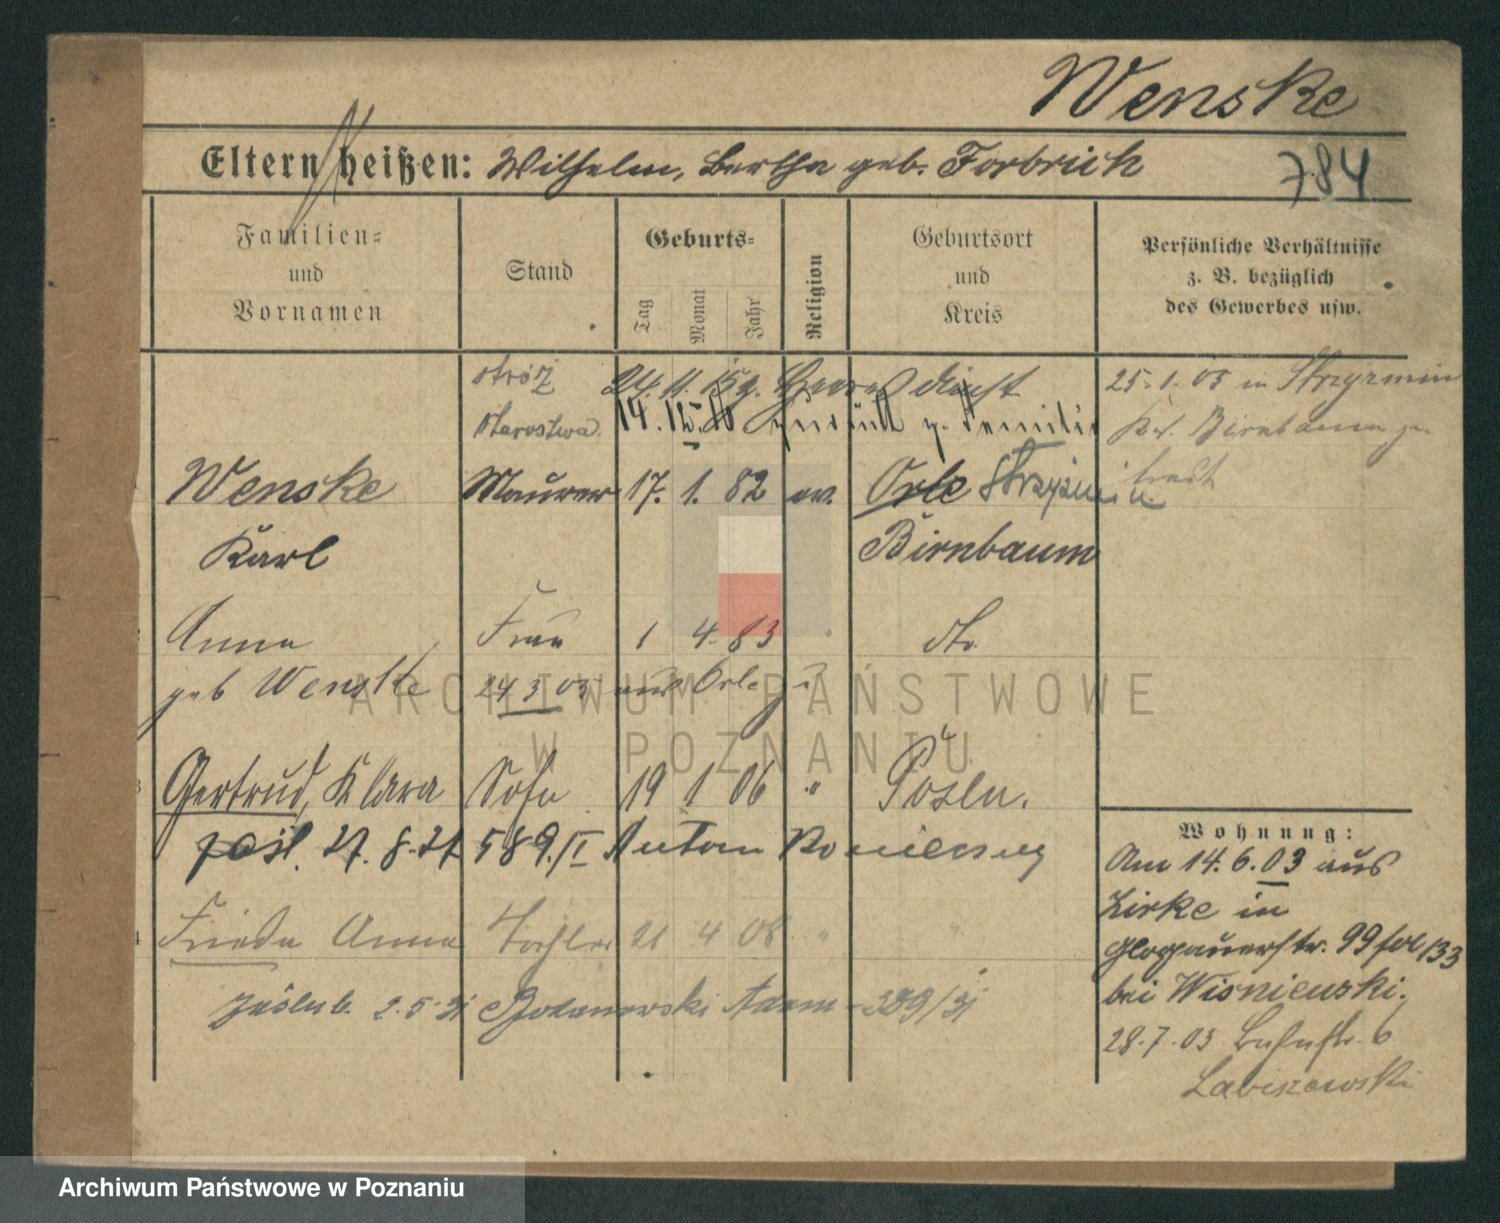 Wenske
Eltern heißen: Wilhelm, Bertha geb. Forbrich
784
Familien-
und
Vornamen
Stand
Geburts-
Tag
Monat
Jahr
Religion
Geburtsort
und
Kreis
Persönliche Verhältnisse
z. B. bezüglich
des Gewerbes usw.
stróż
starostwa.
25.1.05 in Strzyzmin
Kr. Birnbaum
Wenske Maurer 17. 1. 82 ev. Orle Strzyzmin
Karl Birnbaum
Anna Frau 1 4. 83 " dto.
geb Wenske 24 3 03 aus Orle
Gertrud, Klara 19 1 06 " Posen.
27. 8. 27 589./I Anton
Frieda Anna Tochter 21 4 08 " "
zaślub. 2.5.31 Adam
Wohnung:
Am 14.6.03 aus
Zirke in
Glogauerstr. 99 fol 133
bei Wisniewski.
28.7.03 6
ARCHIWUM PAŃSTWOWE
W POZNANIU
Archiwum Państwowe w Poznaniu